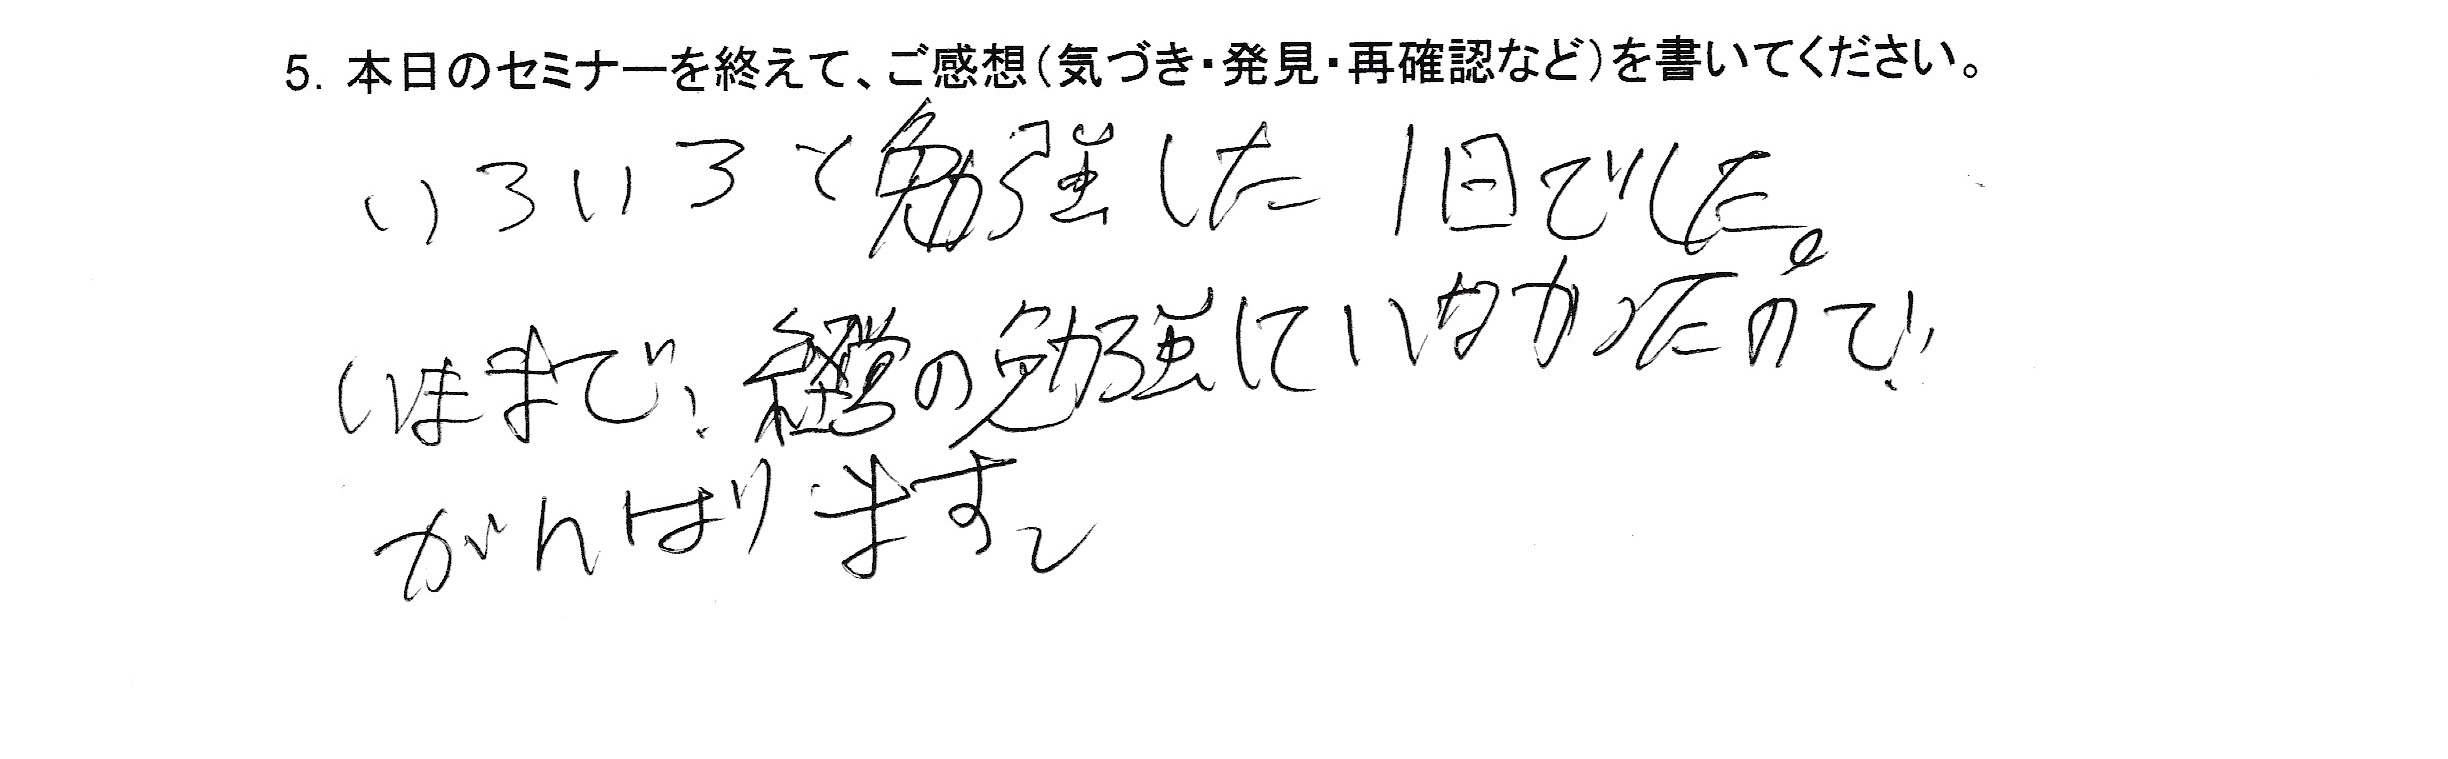 5. 本日のセミナーを終えて、ご感想（気づき・発見・再確認など）を書いてください。
いろいろと勉強した1日でした。
いままで、経営の勉強にいなかったので、
がんばります。